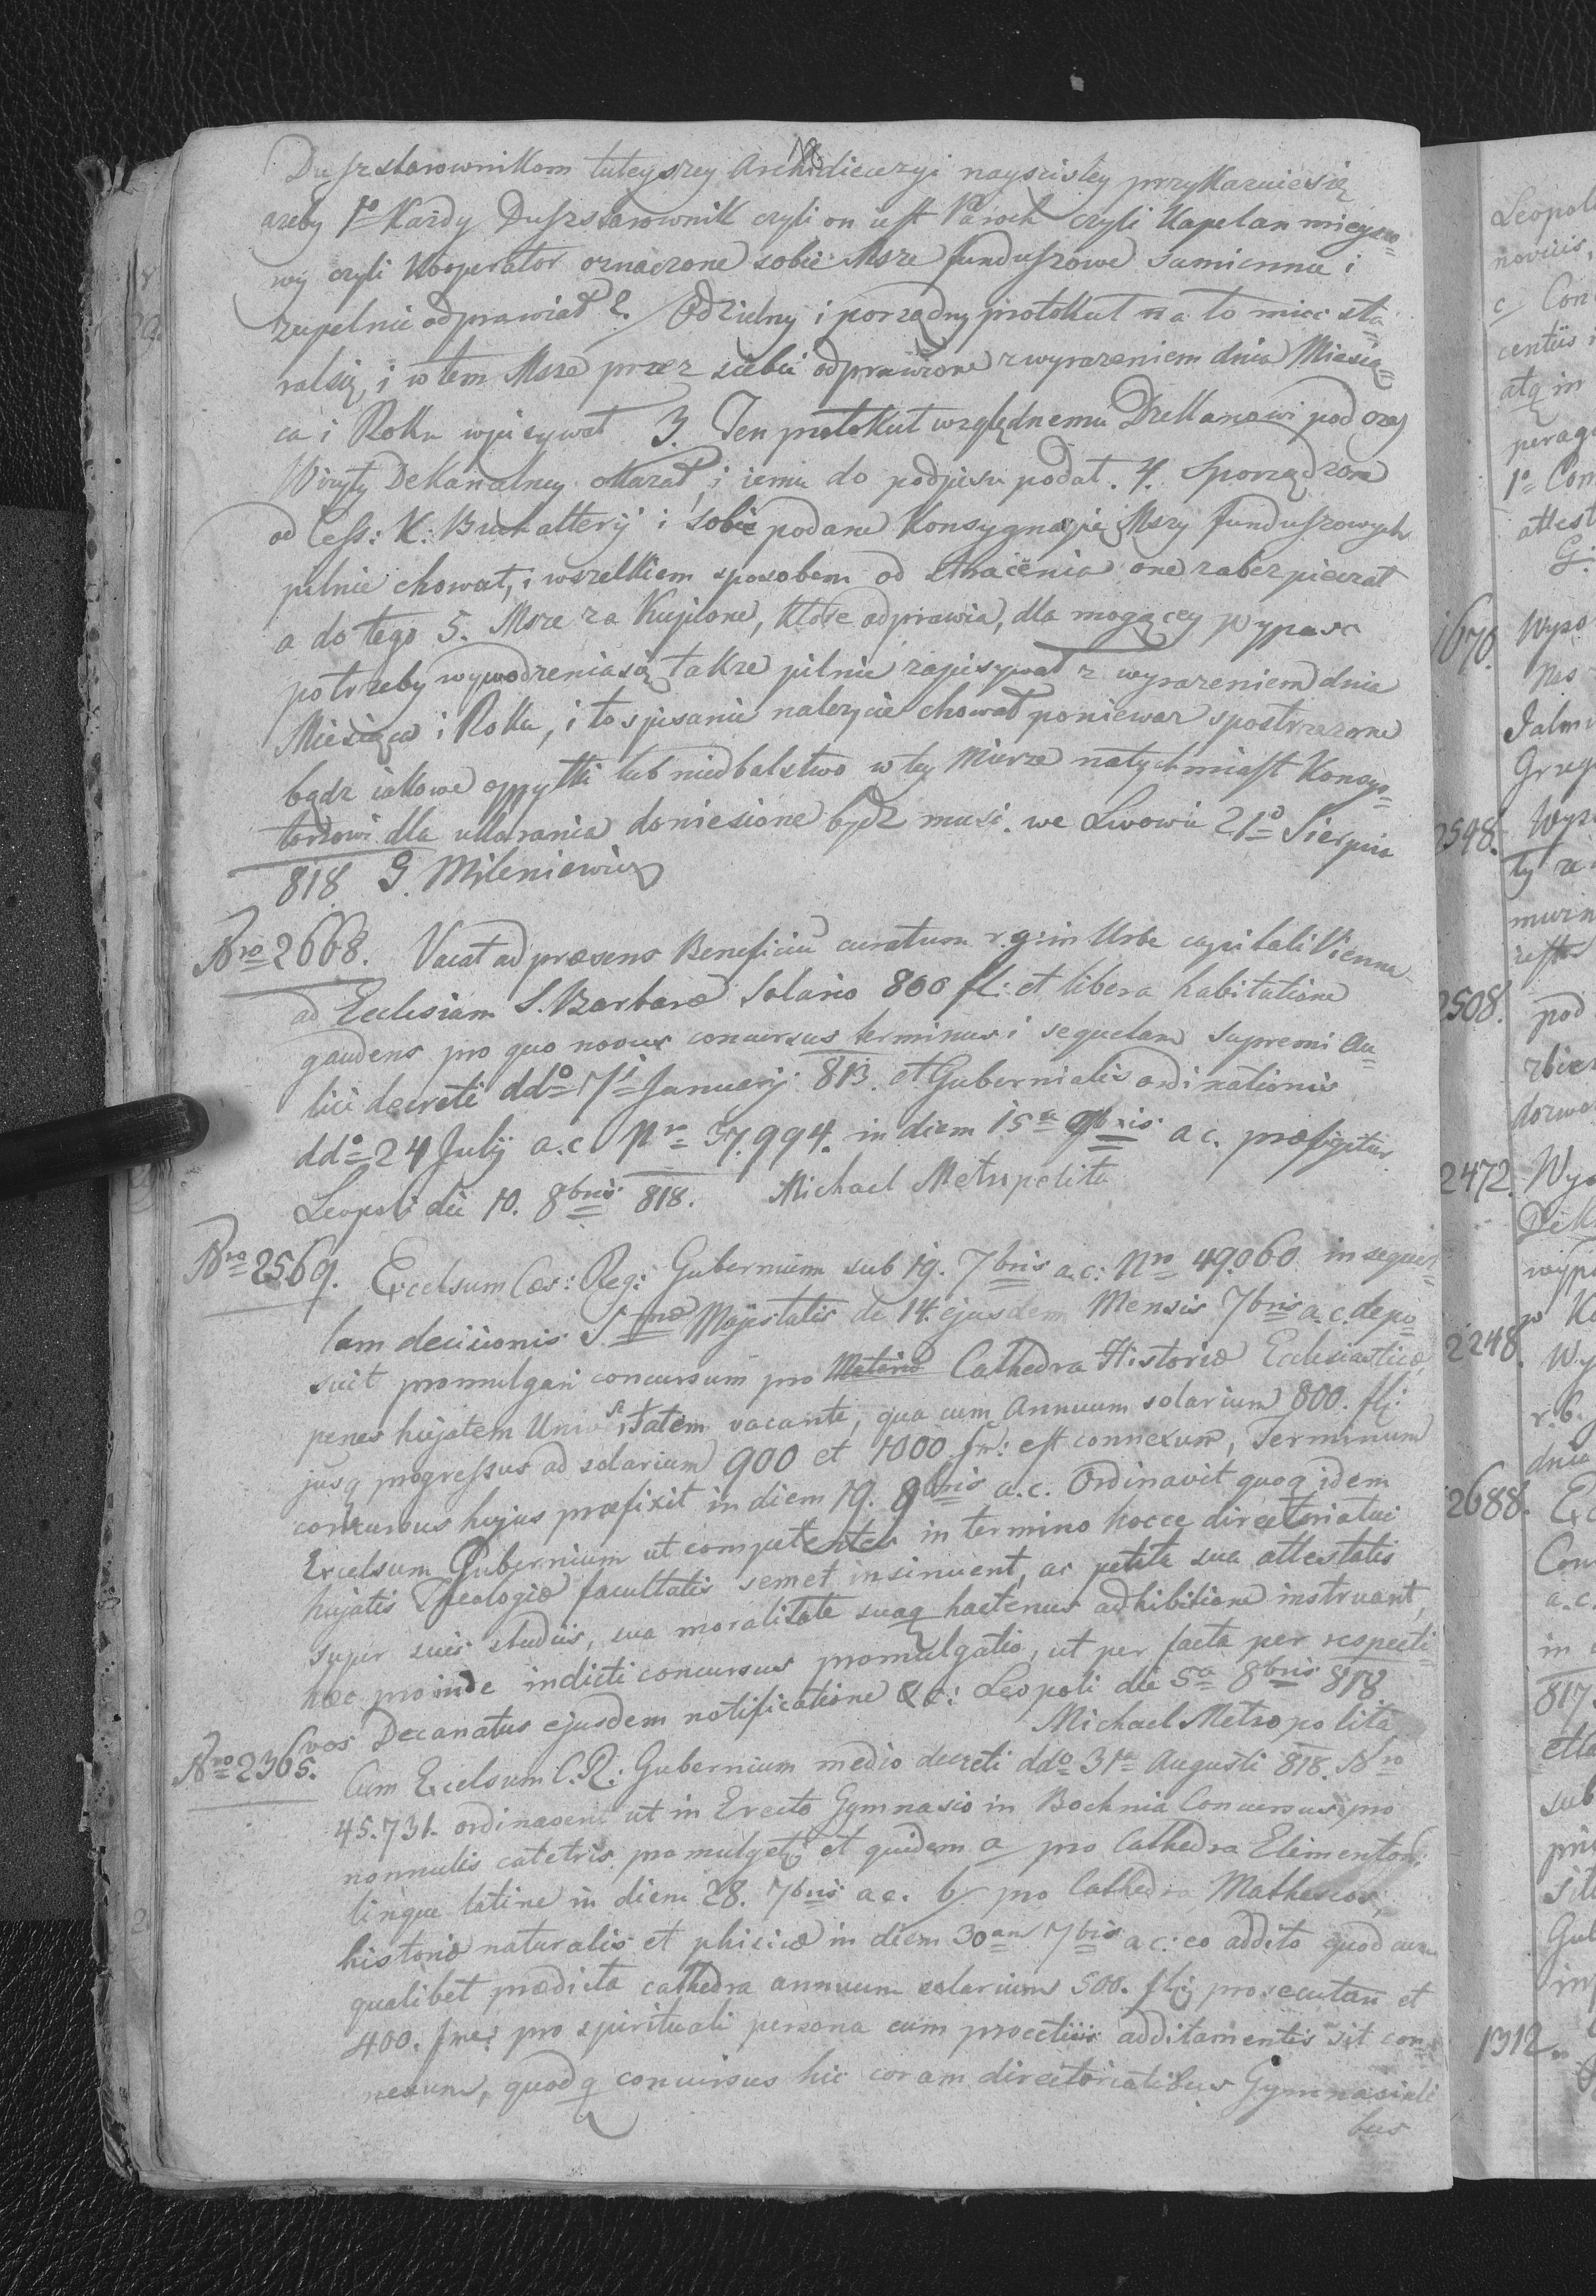 Duszstarownikom tuteyszey Archidiecezyi nayscisley przykazuiesię
azeby 1o Każdy Duszstarownik czyli on iest Paroch czyli Kapelan mieysco=
wy czyli Kooperator oznaczone sobie Msze funduszowe sumiennie i
zupelnie odprawiał 2. Odzielny i porządny protokuł na to miec sta=
rałsię, i w tem Msze przez siebie odprawione z wyrazeniem dnia Miesią=
ca i Roku wpisywał 3. Ten protokuł względnemu Dziekanowi pod czas
Wizyty Dekanalney okazał, i iemu do podpisu podał. 4. Sporządzone
od Cess: K: Buchalteryi i sobie podane Konsygnacyie Mszy funduszowych
pilnie chował, i wszelkiem sposobem od stracenia one zabezpieczał
a do tego 5. Msze za Kupione, które odprawia, dla mogącey wypasc
potrzeby wywodzeniasię także pilnie zapisywał z wyrazeniem dnia
Miesiąca i Roku, i to spisanie nalezycie chował poniewaz spostrzezone
bądz iakowe omyłki lub niedbalstwo w tey Mierze natychmiast Konsys=
torzowi dla ukarania doniesione bydz musi. we Lwowie 21o Sierpnia
818 G. Mileniewicz
Nro 2668. Vacat ad præsens Beneficiū curatum r. g: in Urbe capitali Vienna
ad Ecclesiam S. Barbaræ Salario 800 fl: et libera habitatione
gaudens pro quo novus concursus terminus i sequelam supremi Au=
lici decreti ddo 7i Januarij 813. et Gubernialis ordinationis
ddo 24 Julij a.c. Nro 37.994. in diem 15a 9bris a c. præfigitur
Leopoli die 10. 8bris 818. Michael Metropolita
Nro 2569. Excelsum Cæs: Reg: Gubernium sub 19. 7bris a.c: Nro 49.060 in seque=
lam decisionis Smæ Majestatis de 14. ejusdem Mensis 7bris a.c. depo=
suit promulgari concursum pro Cathedra Historiæ Ecclesiasticæ
penes hujatem Universitatem vacante, qua cum Annuum solarium 800. fl:
jusq progressus ad solarium 900 et 1000 fr: est connexum, Terminum
concursus hujus præfixit in diem 19. 9bris a.c. Ordinavit quoq idem
Excelsum Gubernium ut competentes in termino hocce directoriatui
hujatis Theologiæ facultatis semet insinuent, ac petita sua attestatis
super suis studiis, sua moralitate suaq hactenus adhibitione instruant,
hæc proinde indicti concursus promulgatio, ut per facta per respecti=
vos Decanatus ejusdem notificatione &c: Leopoli die 5a 8bris 818
Michael Metropolita
Nro 2365. Cum Excelsum C. R: Gubernium medio decreti ddo 31a Augusti 818. Nro
45.731. ordinasset ut in Erecto Gymnasio in Bochnia Concursus pro
nonnulis catetris promulget et quidem a pro Cathedra Elimentor:
lingue latine in diem 28. 7bris a c. b pro Cathedra Matheseos,
historiæ naturalis et phisicæ in diem 30am 7bris a c: eo addito quod cum
qualibet prædicta cathedra annuum solarium 500. fl: pro seculari et
400. fre: pro spirituali persona cum additamentis sit con=
nexum, quodq concursus hic coram directoriatibus Gymnasiali
bus
Leopoli
noviis,
c/ Con
centiis
atq in
perag
1o Con
attest
G:
1670. Wyzo
Nes
Jalm
Grzeg
2548. Wyz
ty
murn
2508. pod
zbie
dozwo
2472. Wyz
Dek
wyp
2248. Wy
r. b.
dnia
2688. Exc
Con
a.c.
in
817.
sub
pri
Gub
1312.